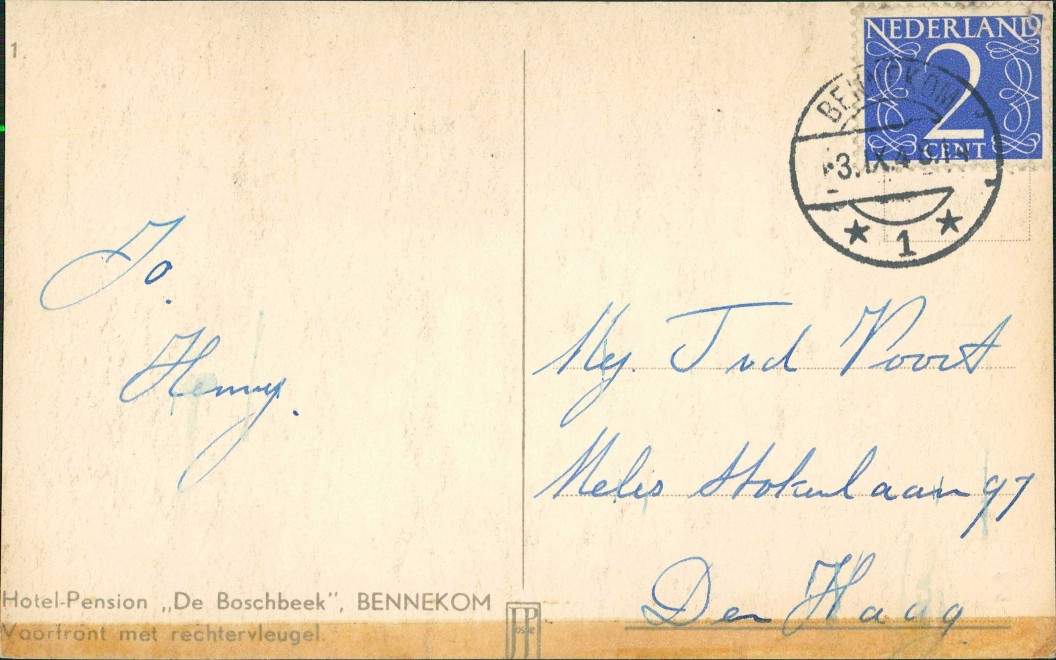 1
NEDERLAND
2
CENT
BENNEKOM
1
Jo.
Henny.
Mej. J vd Voort
Melis Stokelaan 97
Den Haag
Hotel-Pension „De Boschbeek”, BENNEKOM
Voorfront met rechtervleugel.